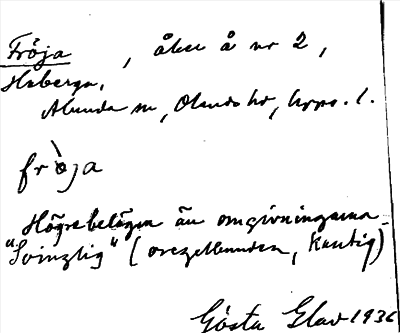 Fröja, åker å nr 2,
Haberga,
Almunda sn, Olands hd, Upps. l.
fròja
Högre belägen än omgivningarna.
"Svinzlig" (oregelbunden, kantig)
Gösta Elav 1936